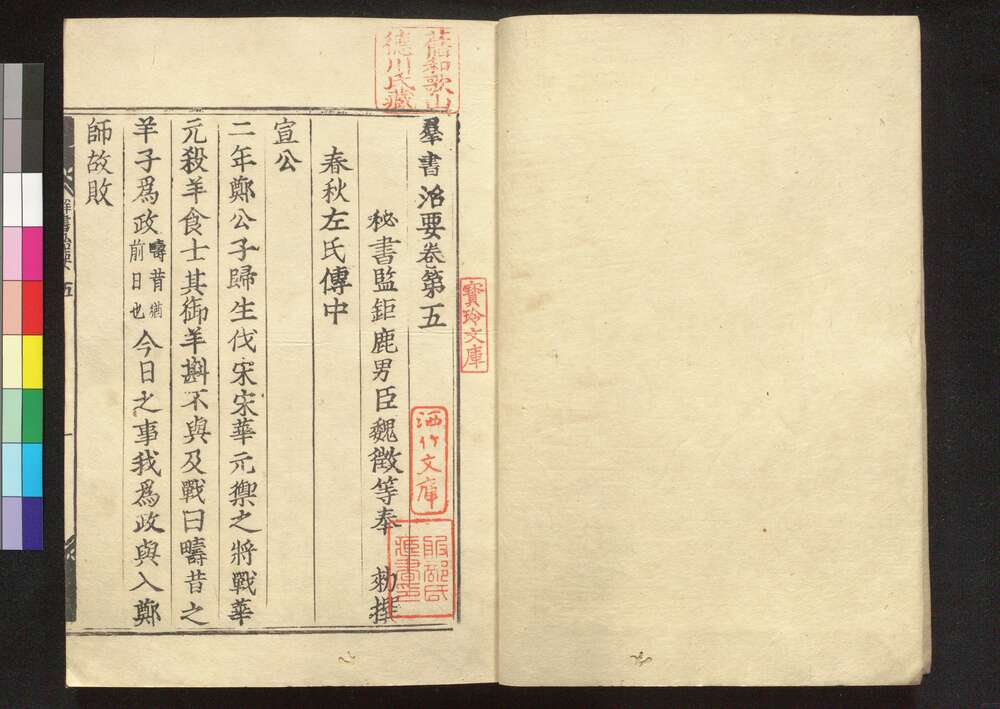 羣書治要卷第五
秘書監鉅鹿男臣魏徵等奉 勅撰
春秋左氏傳中
宣公
二年鄭公子歸生伐宋宋華元禦之將戰華
元殺羊食士其御羊斟不與及戰曰疇昔之
羊子爲政疇昔猶前日也今日之事我爲政與入鄭
師故敗
群書治要 五
一
舊和歌山
德川氏藏
寶玲文庫
洒竹文庫
服部氏